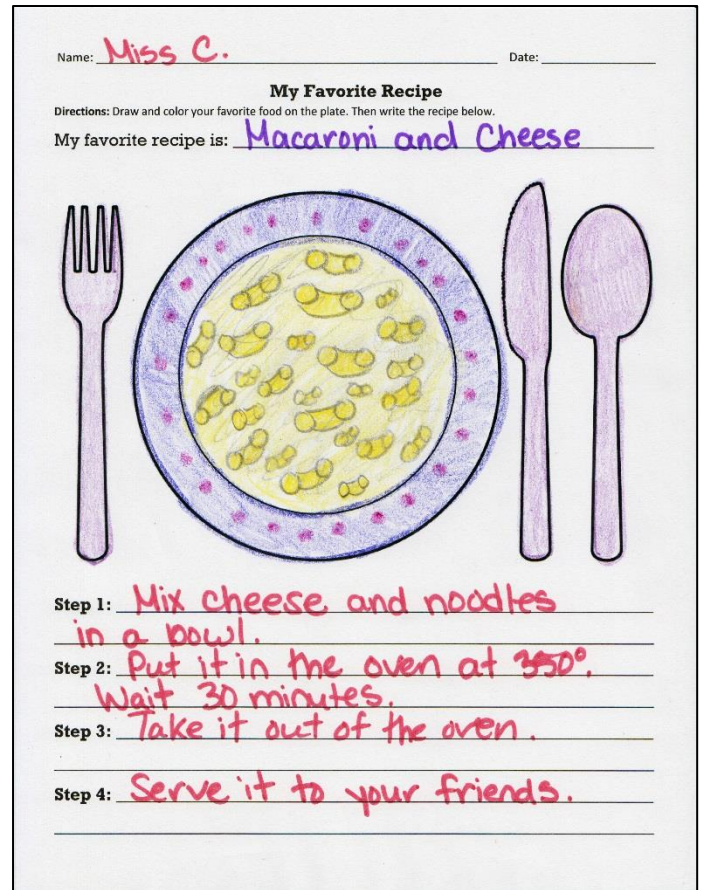 Name: Miss C. Date:
My Favorite Recipe
Directions: Draw and color your favorite food on the plate. Then write the recipe below.
My favorite recipe is: Macaroni and Cheese
Step 1: Mix cheese and noodles
in a bowl.
Step 2: Put it in the oven at 350°.
Wait 30 minutes.
Step 3: Take it out of the oven.
Step 4: Serve it to your friends.